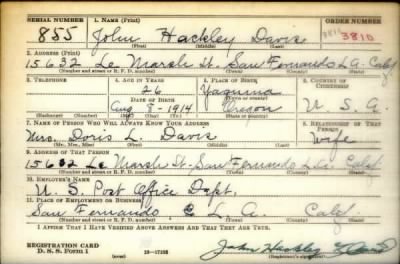 SERIAL NUMBER 1. NAME (Print) ORDER NUMBER
855 John Hackley Davis 3810
(First) (Middle) (Last)
2. ADDRESS (Print)
15632 Le Marsh St. San Fernando L A. Calif
(Number and street or R. F. D. number) (Town) (County) (State)
3. TELEPHONE 4. AGE IN YEARS 5. PLACE OF BIRTH 6. COUNTRY OF CITIZENSHIP
26 Yaquina
(Town or county)
Aug 8 - 1914 Oregon U. S. A.
(Exchange) (Number) (Mo.) (Day) (Yr.) (State or country)
7. NAME OF PERSON WHO WILL ALWAYS KNOW YOUR ADDRESS 8. RELATIONSHIP OF THAT PERSON
Mrs. Doris L. Davis Wife
(Mr., Mrs., Miss) (First) (Middle) (Last)
9. ADDRESS OF THAT PERSON
15632 Le Marsh St. San Fernando L.A. Calif.
(Number and street or R. F. D. number) (Town) (County) (State)
10. EMPLOYER'S NAME
U. S. Post Office Dept.
11. PLACE OF EMPLOYMENT OR BUSINESS
San Fernando L. A. Calif
(Number and street or R. F. D. number) (Town) (County) (State)
I AFFIRM THAT I HAVE VERIFIED ABOVE ANSWERS AND THAT THEY ARE TRUE.
REGISTRATION CARD
D. S. S. Form 1 16-17105 John Hackley Davis
(Registrant's signature)